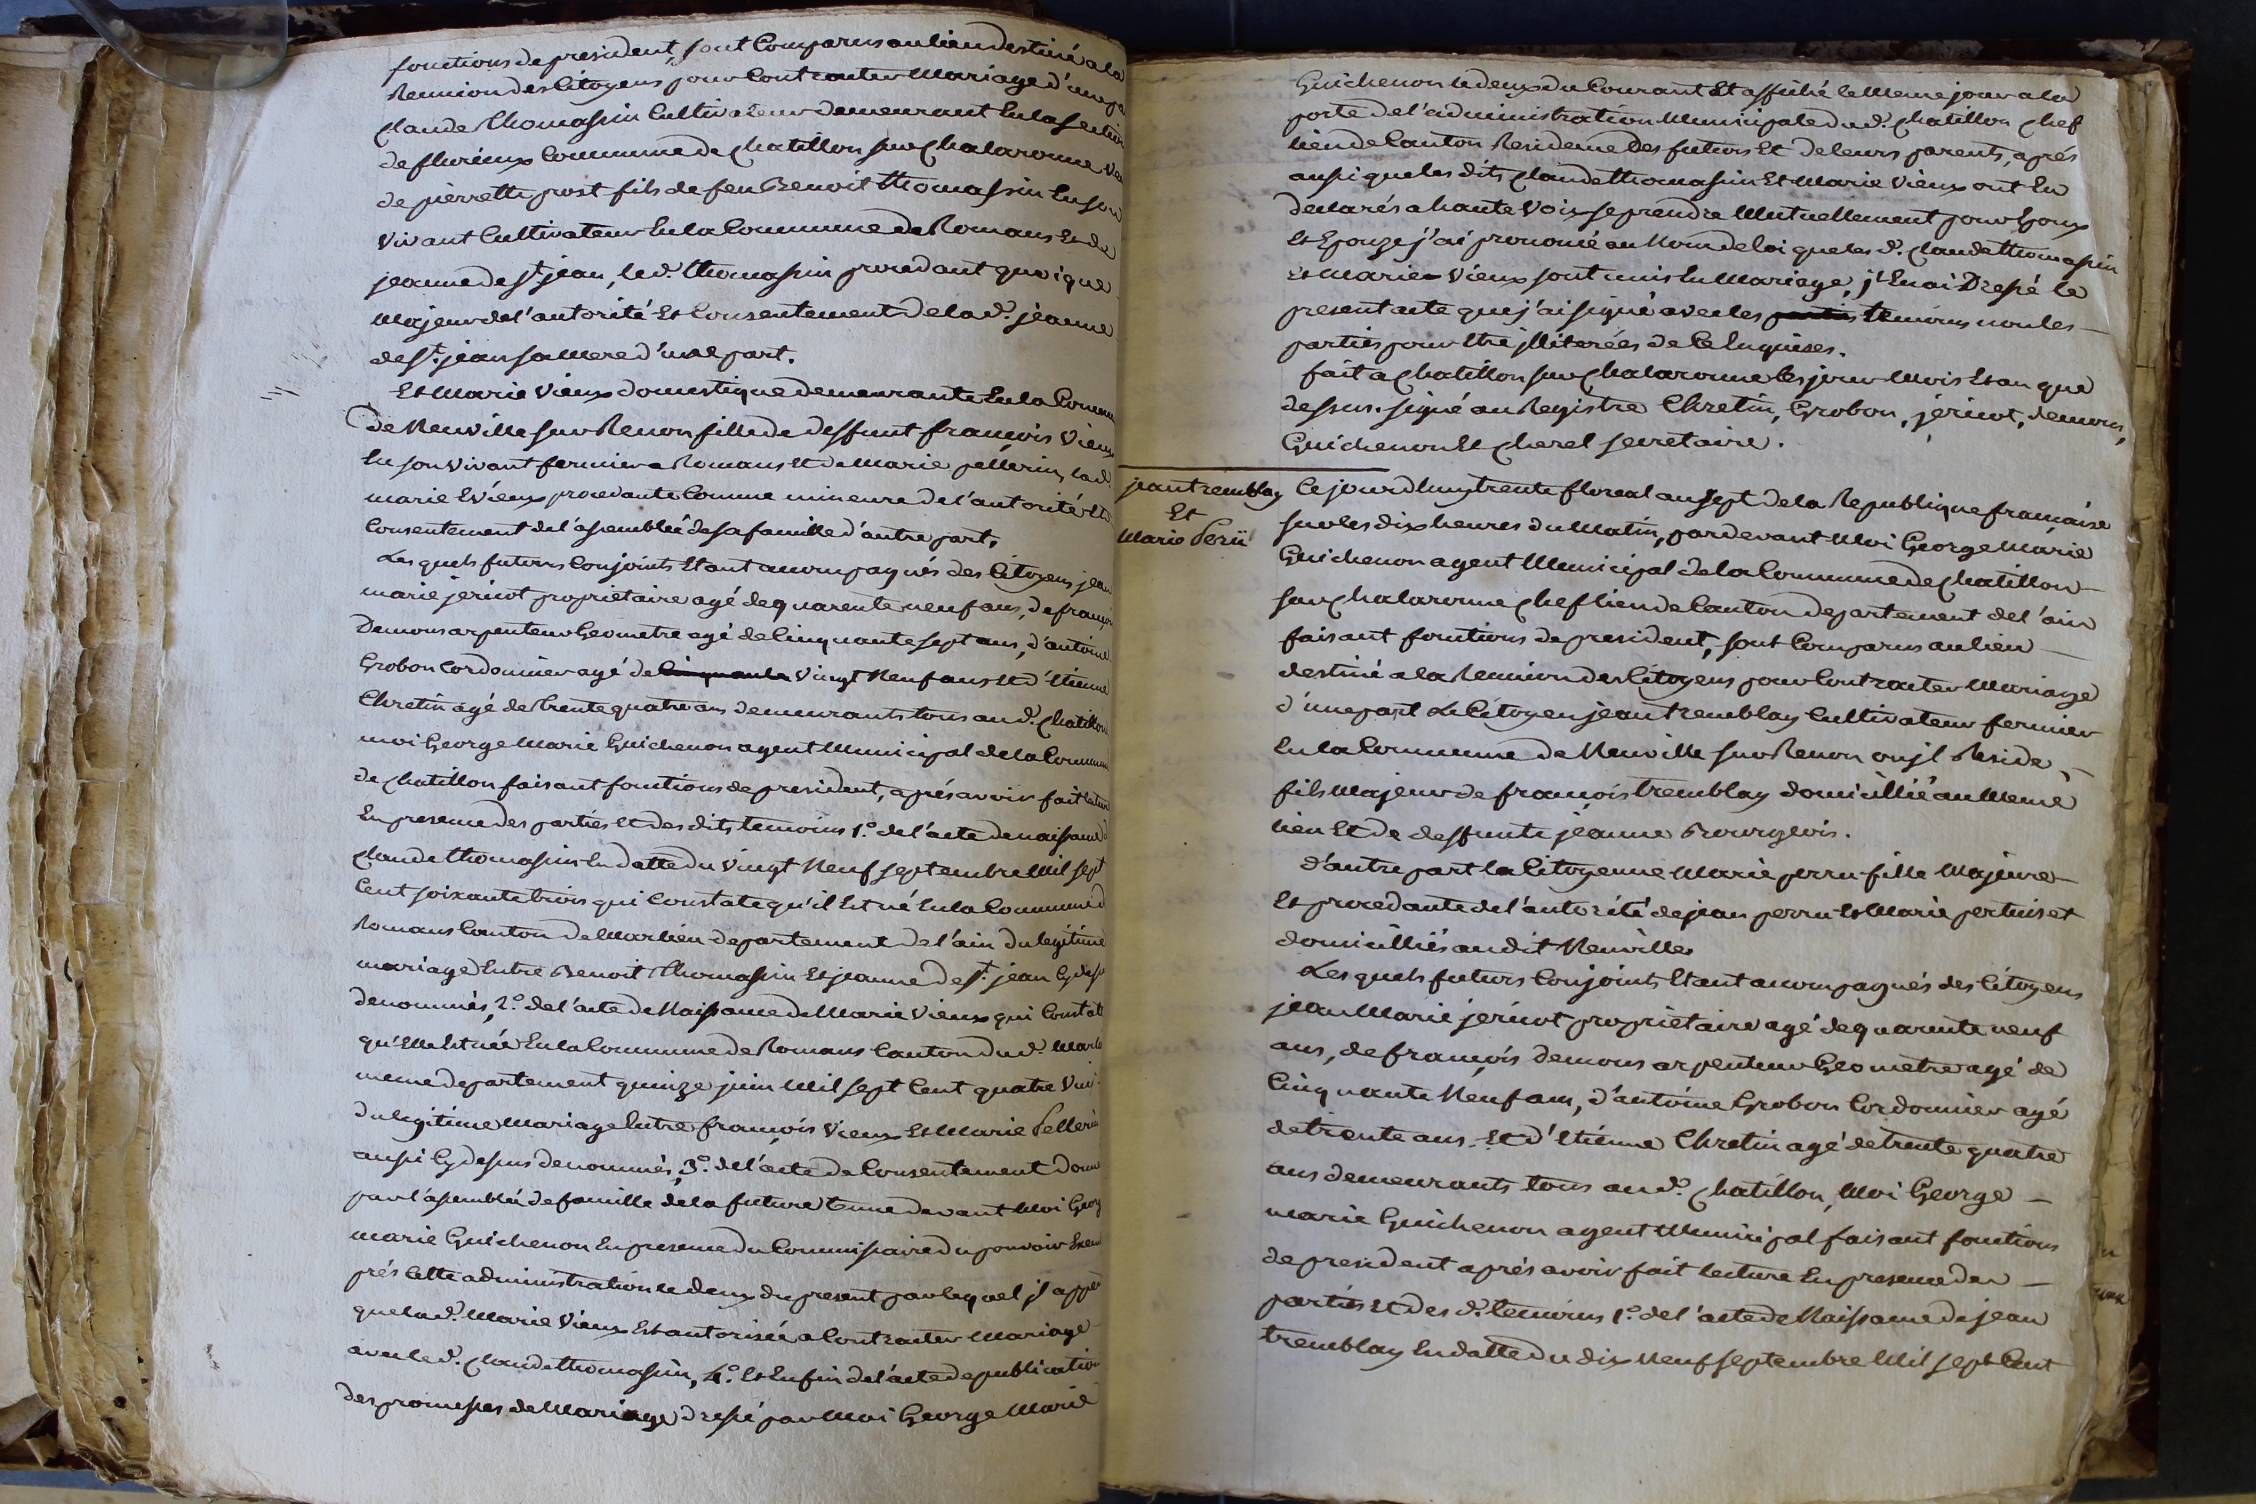 fonctions de president, sont Comparus au lieu destiné a la
Reunion des Citoyens pour Contracter Mariage d'une p
Claude Thomassin Cultivateur demeurant En la section
de fleurieux Commune de Chatillon sur Chalaronne veu
de pierrette prost fils de feu Benoit Thomassin En son
vivant Cultivateur En la Commune de Romans Et de
jeanne de st. jean, le d. Thomassin procedant quoique
Majeur de l'autorité Et Consentement de la d. jeanne
de st. jean sa Mere d'une part.
Et Marie Vieux domestique demeurante En la Commun
de Neuville sur Renon fille de deffunt françois Vieux
En son vivant fermier a Romans Et de Marie pellerin, la d.
marie Vieux procedante Comme mineure de l'autorité Et
Consentement de l'assemblée de sa famille d'autre part.
Les quels futurs Conjoints Etant accompagnés des Citoyens jean
marie jericot propriétaire agé de quarente neuf ans, de françoi
Demons arpenteur Geometre agé de Cinquante sept ans, d'antoine
Grobon Cordonnier agé de Cinquante Vingt Neuf ans Et d'Etienne
Chretin agé de trente quatre ans demeurants tous au d. Chatillon
moi George Marie Guichenon agent Municipal de la Commun
de Chatillon faisant fonctions de president, aprés avoir fait lectur
En presence des parties Et des dits temoins 1.o de l'acte de naissance d
Claude thomassin En datte du Vingt Neuf septembre Mil sept
Cent soixante trois qui Constate qu'il Est né En la Commune d
Romans Canton de Marlieu departement de l'ain du legitime
mariage Entre Benoit Thomassin Et jeanne de st. jean Cy dess
denommés, 2.o de l'acte de Naissance de Marie Vieux qui Constat
qu'Elle Est née En la Commune de Romans Canton du d. Marli
meme departement quinze juin Mil sept Cent quatre Vin
du legitime Mariage Entre françois Vieux Et Marie Pellerin
aussi Cy dessus denommés, 3.o de l'acte de Consentement donn
par l'assemblée de famille de la future tenue devant Moi Georg
marie Guichenon En presence du Commissaire du pouvoir Execu
prés Cette administration le deux du present par lequel jl appe
que la d. Marie Vieux Est autorisée a Contracter Mariage
avec le d. Claude thomassin, 4.o Et Enfin de l'acte de publication
des promesses de Mariage dressé par Moi George Marie
Guichenon le deux du Courant Et affiché le Meme jour a la
porte de l'administration Municipale du d. Chatillon Chef
lieu de Canton Residence des futurs Et de leurs parents, aprés
aussi que les dits Claude thomassin Et Marie Vieux ont Eu
declarés a haute Voix se prendre Mutuellement pour Epoux
Et Epouze j'ai prononcé au Nom de loi que les d. Claude thomassin
Et Marie Vieux sont unis En Mariage, j'En ai Dressé le
present acte que j'ai signé avec les parties temoins non les
parties pour Etre jlliterées de Ce Enquises.
fait a Chatillon sur Chalaronne les jour Mois Et an que
dessus. signé au Registre Chretin, Grobon, jericot, demons,
Guichenon Et Cherel secretaire.
jean tremblay
Et
Marie Perü
Ce jourdhuy trente floreal an sept de la Republique française
sur les dix heures du Matin, pardevant Moi George Marie
Guichenon agent Municipal de la Commune de Chatillon
sur Chalaronne Chef lieu de Canton departement de l'ain
faisant fonctions de president, sont Comparus au lieu
destiné a la Reunion des Citoyens pour Contracter Mariage
d'une part Le Citoyen jean tremblay Cultivateur fermier
En la Commune de Neuville sur Renon ou jl Reside,
fils Majeur de françois tremblay domicillié au Meme
lieu Et de deffunte jeanne Bourgeois.
d'autre part la Citoyenne Marie perru fille Majeure
Et procedante de l'autorité de jean perru Et Marie pertuiset
domicilliés au dit Neuville
Les quels futurs Conjoints Etant accompagnés des Citoyens
jean Marie jericot propriétaire agé de quarente neuf
ans, de françois demons arpenteur Geometre agé de
Cinquante Neuf ans, d'antoine Grobon Cordonnier agé
de trente ans Et d'Etienne Chretin agé de trente quatre
ans demeurants tous au d. Chatillon, Moi George
marie Guichenon agent Municipal faisant fonctions
de president aprés avoir fait lecture En presence des
parties Et des d. temoins 1.o de l'acte de Naissance de jean
tremblay En datte du dix Neuf septembre Mil sept Cent